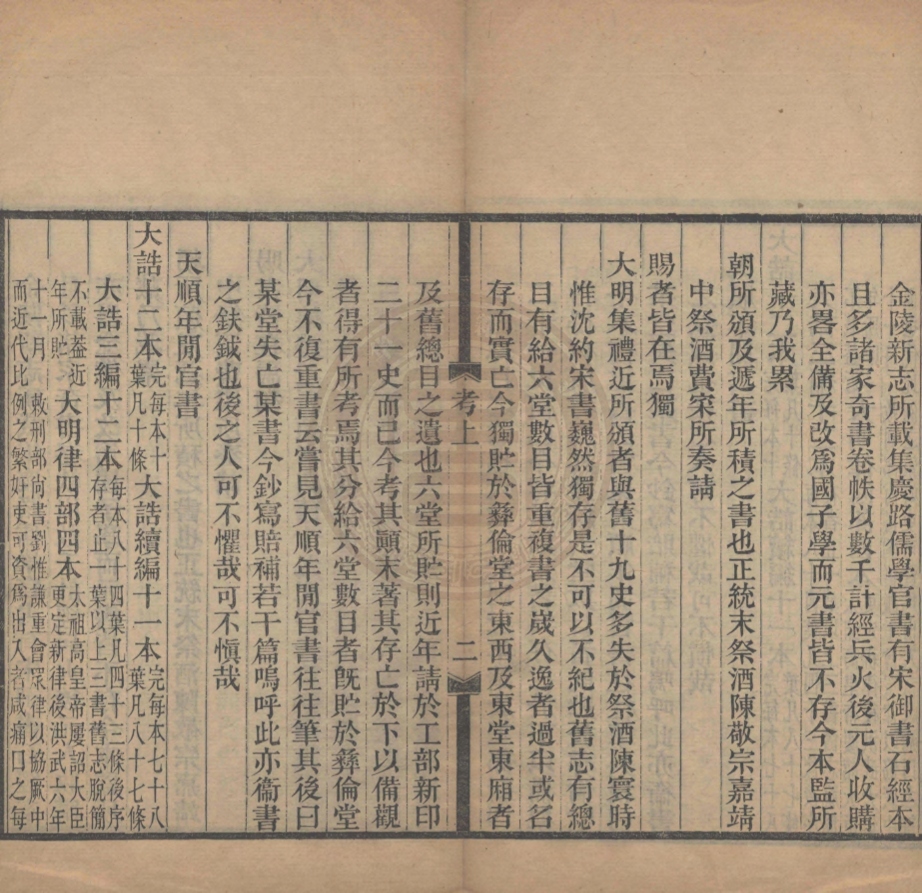 金陵新志所載集慶路儒學官書有宋御書石經本
且多諸家奇書卷帙以數千計經兵火後元人收購
亦畧全備及改爲國子學而元書皆不存今本監所
藏乃我累
朝所頒及遞年所積之書也正統末祭酒陳敬宗嘉靖
中祭酒費寀所奏請
賜者皆在焉獨
大明集禮近所頒者與舊十九史多失於祭酒陳寰時
惟沈約宋書巍然獨存是不可以不紀也舊志有總
目有給六堂數目皆重複書之歲久逸者過半或名
存而實亡今獨貯於彝倫堂之東西及東堂東廂者
考上 二
及舊總目之遺也六堂所貯則近年請於工部新印
二十一史而已今考其顛末著其存亡於下以備觀
者得有所考焉其分給六堂數目者旣貯於彝倫堂
今不復重書云嘗見天順年閒官書往往筆其後曰
某堂失亡某書今鈔寫賠補若干篇嗚呼此亦衞書
之鈇鉞也後之人可不懼哉可不愼哉
天順年閒官書
大誥十二本完每本十葉凡十條大誥續編十一本完每本七十八葉凡八十七條
大誥三編十二本每本八十四葉凡四十三條後序存者止一葉以上三書舊志脫簡
不載葢近年所貯大明律四部四本太祖高皇帝屢詔大臣更定新律後洪武六年
十一月敕刑部尙書劉惟謙重會眾律以協厥中而近代比例之繁奸吏可資爲出入者咸痛口之每